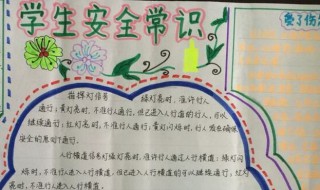 学生安全常识
指挥灯信号 绿灯亮时，准许行人
通行；黄灯亮时，不准行人通行，但已进入行道的行人，可以
继续通行；红灯亮时，不准行人通行；黄灯闪烁时，行人须在确保
安全的原则下通行。
人行横道信号灯绿灯亮时，准许行人通过人行横道；绿灯闪
烁时，不准行人进入人行横道，但已进入人行横道的可以继续通行；红灯
亮时，不准行人进入人行横道